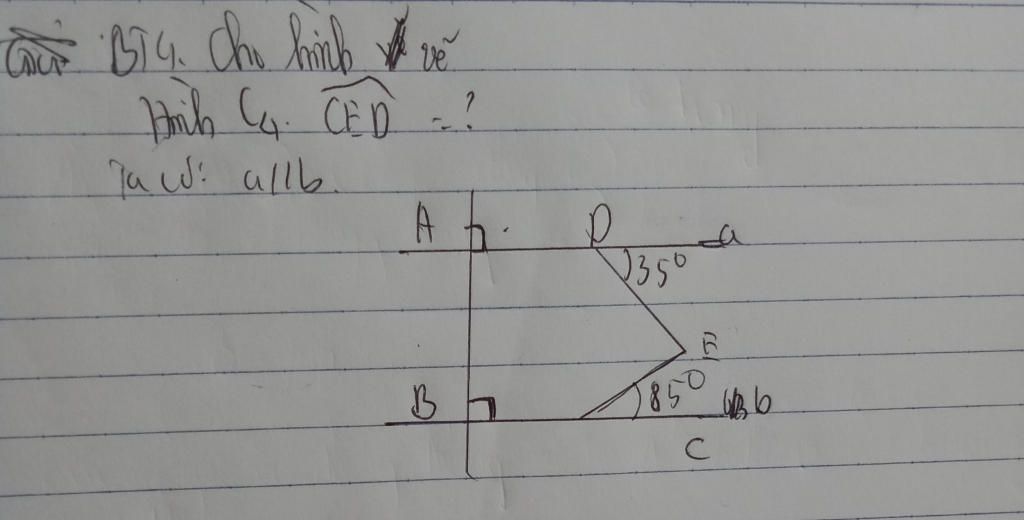 BT4. Cho hình vẽ
Hình C4. CED = ?
Ta có: a//b.
A D a
35°
E
B 85° b
C